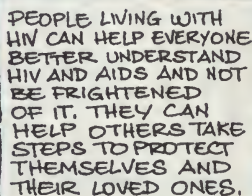 PEOPLE LIVING WITH
HIV CAN HELP EVERYONE
BETTER UNDERSTAND
HIV AND AIDS AND NOT
BE FRIGHTENED
OF IT. THEY CAN
HELP OTHERS TAKE
STEPS TO PROTECT
THEMSELVES AND
THEIR LOVED ONES.